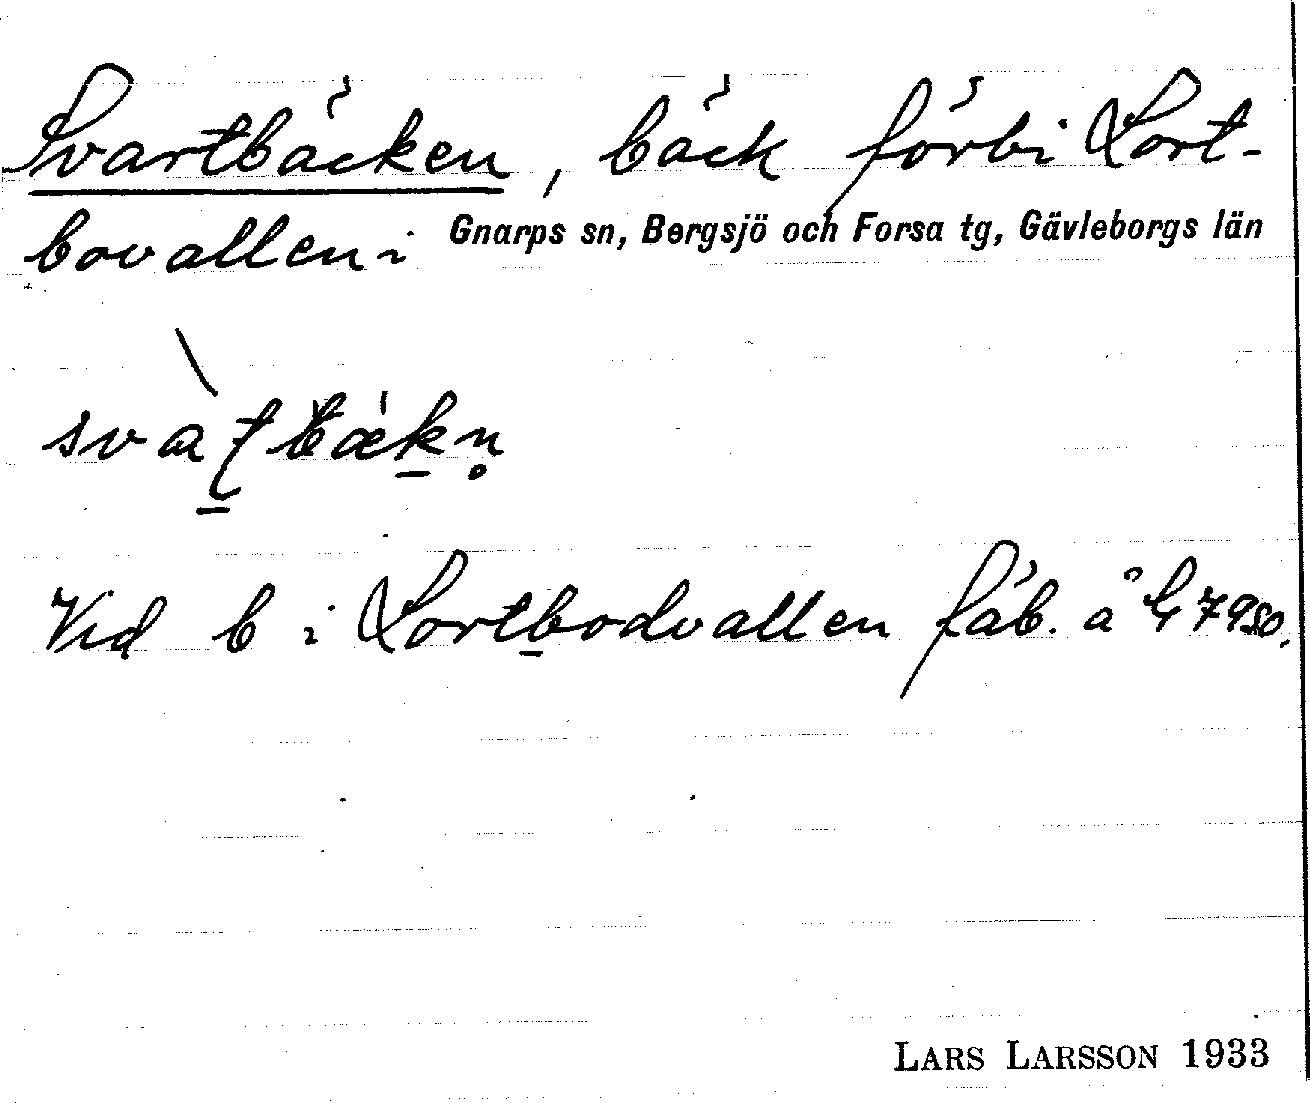 Svartbäcken, bäck förbi Lort-
bovallen i Gnarps sn, Bergsjö och Forsa tg, Gävleborgs län
Vid b i Lortbodvallen fäb. å G 79 so.
LARS LARSSON 1933